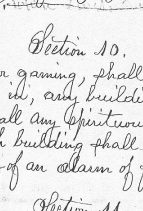 Section 10.
or gaming, shall
in, any buildi
all any spirituou
h building shall
of an alarm of f
Section 11